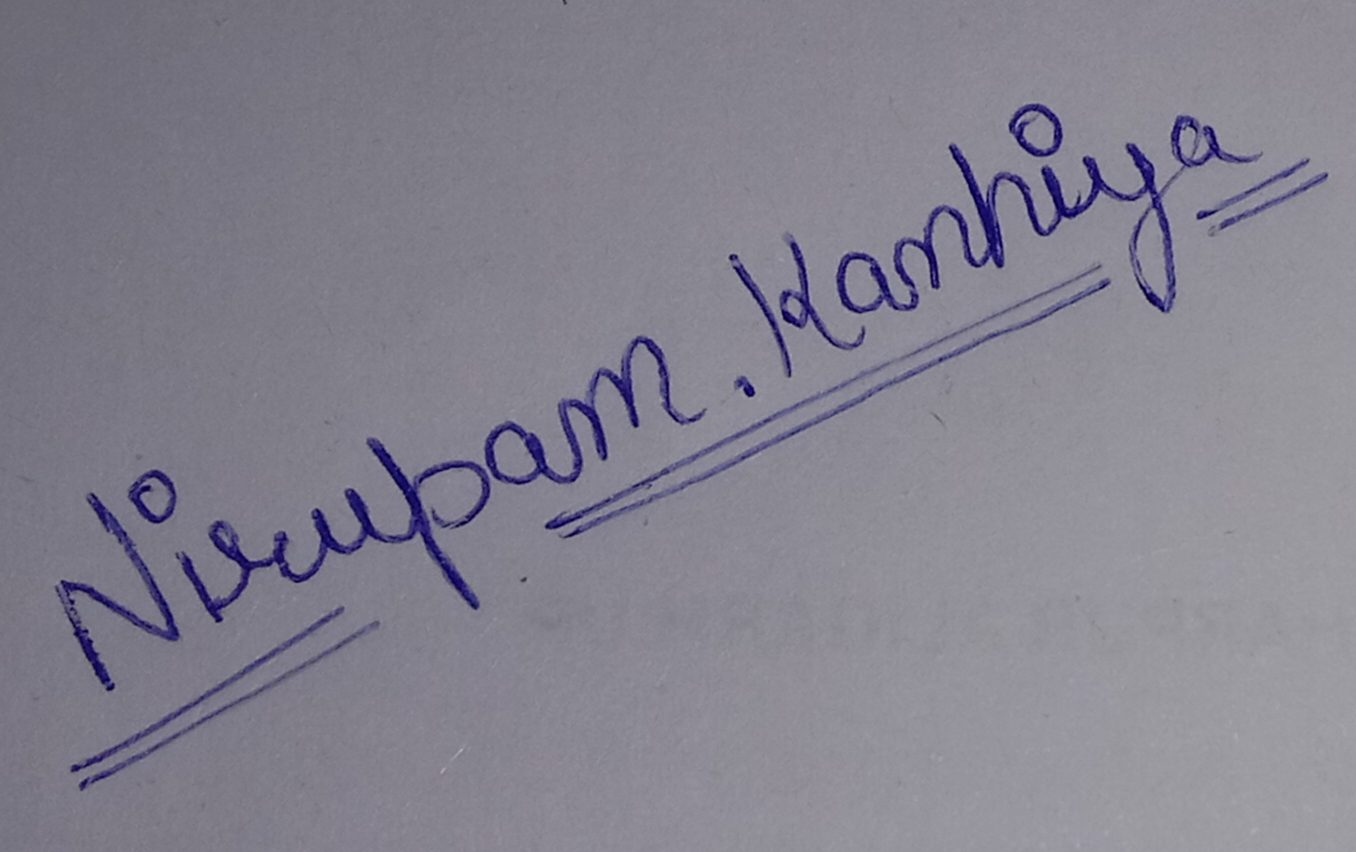 Nirupam. Kanhiya